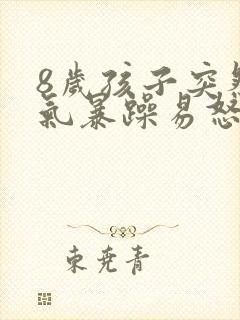 8歲孩子突然
氣暴躁易怒
東堯青